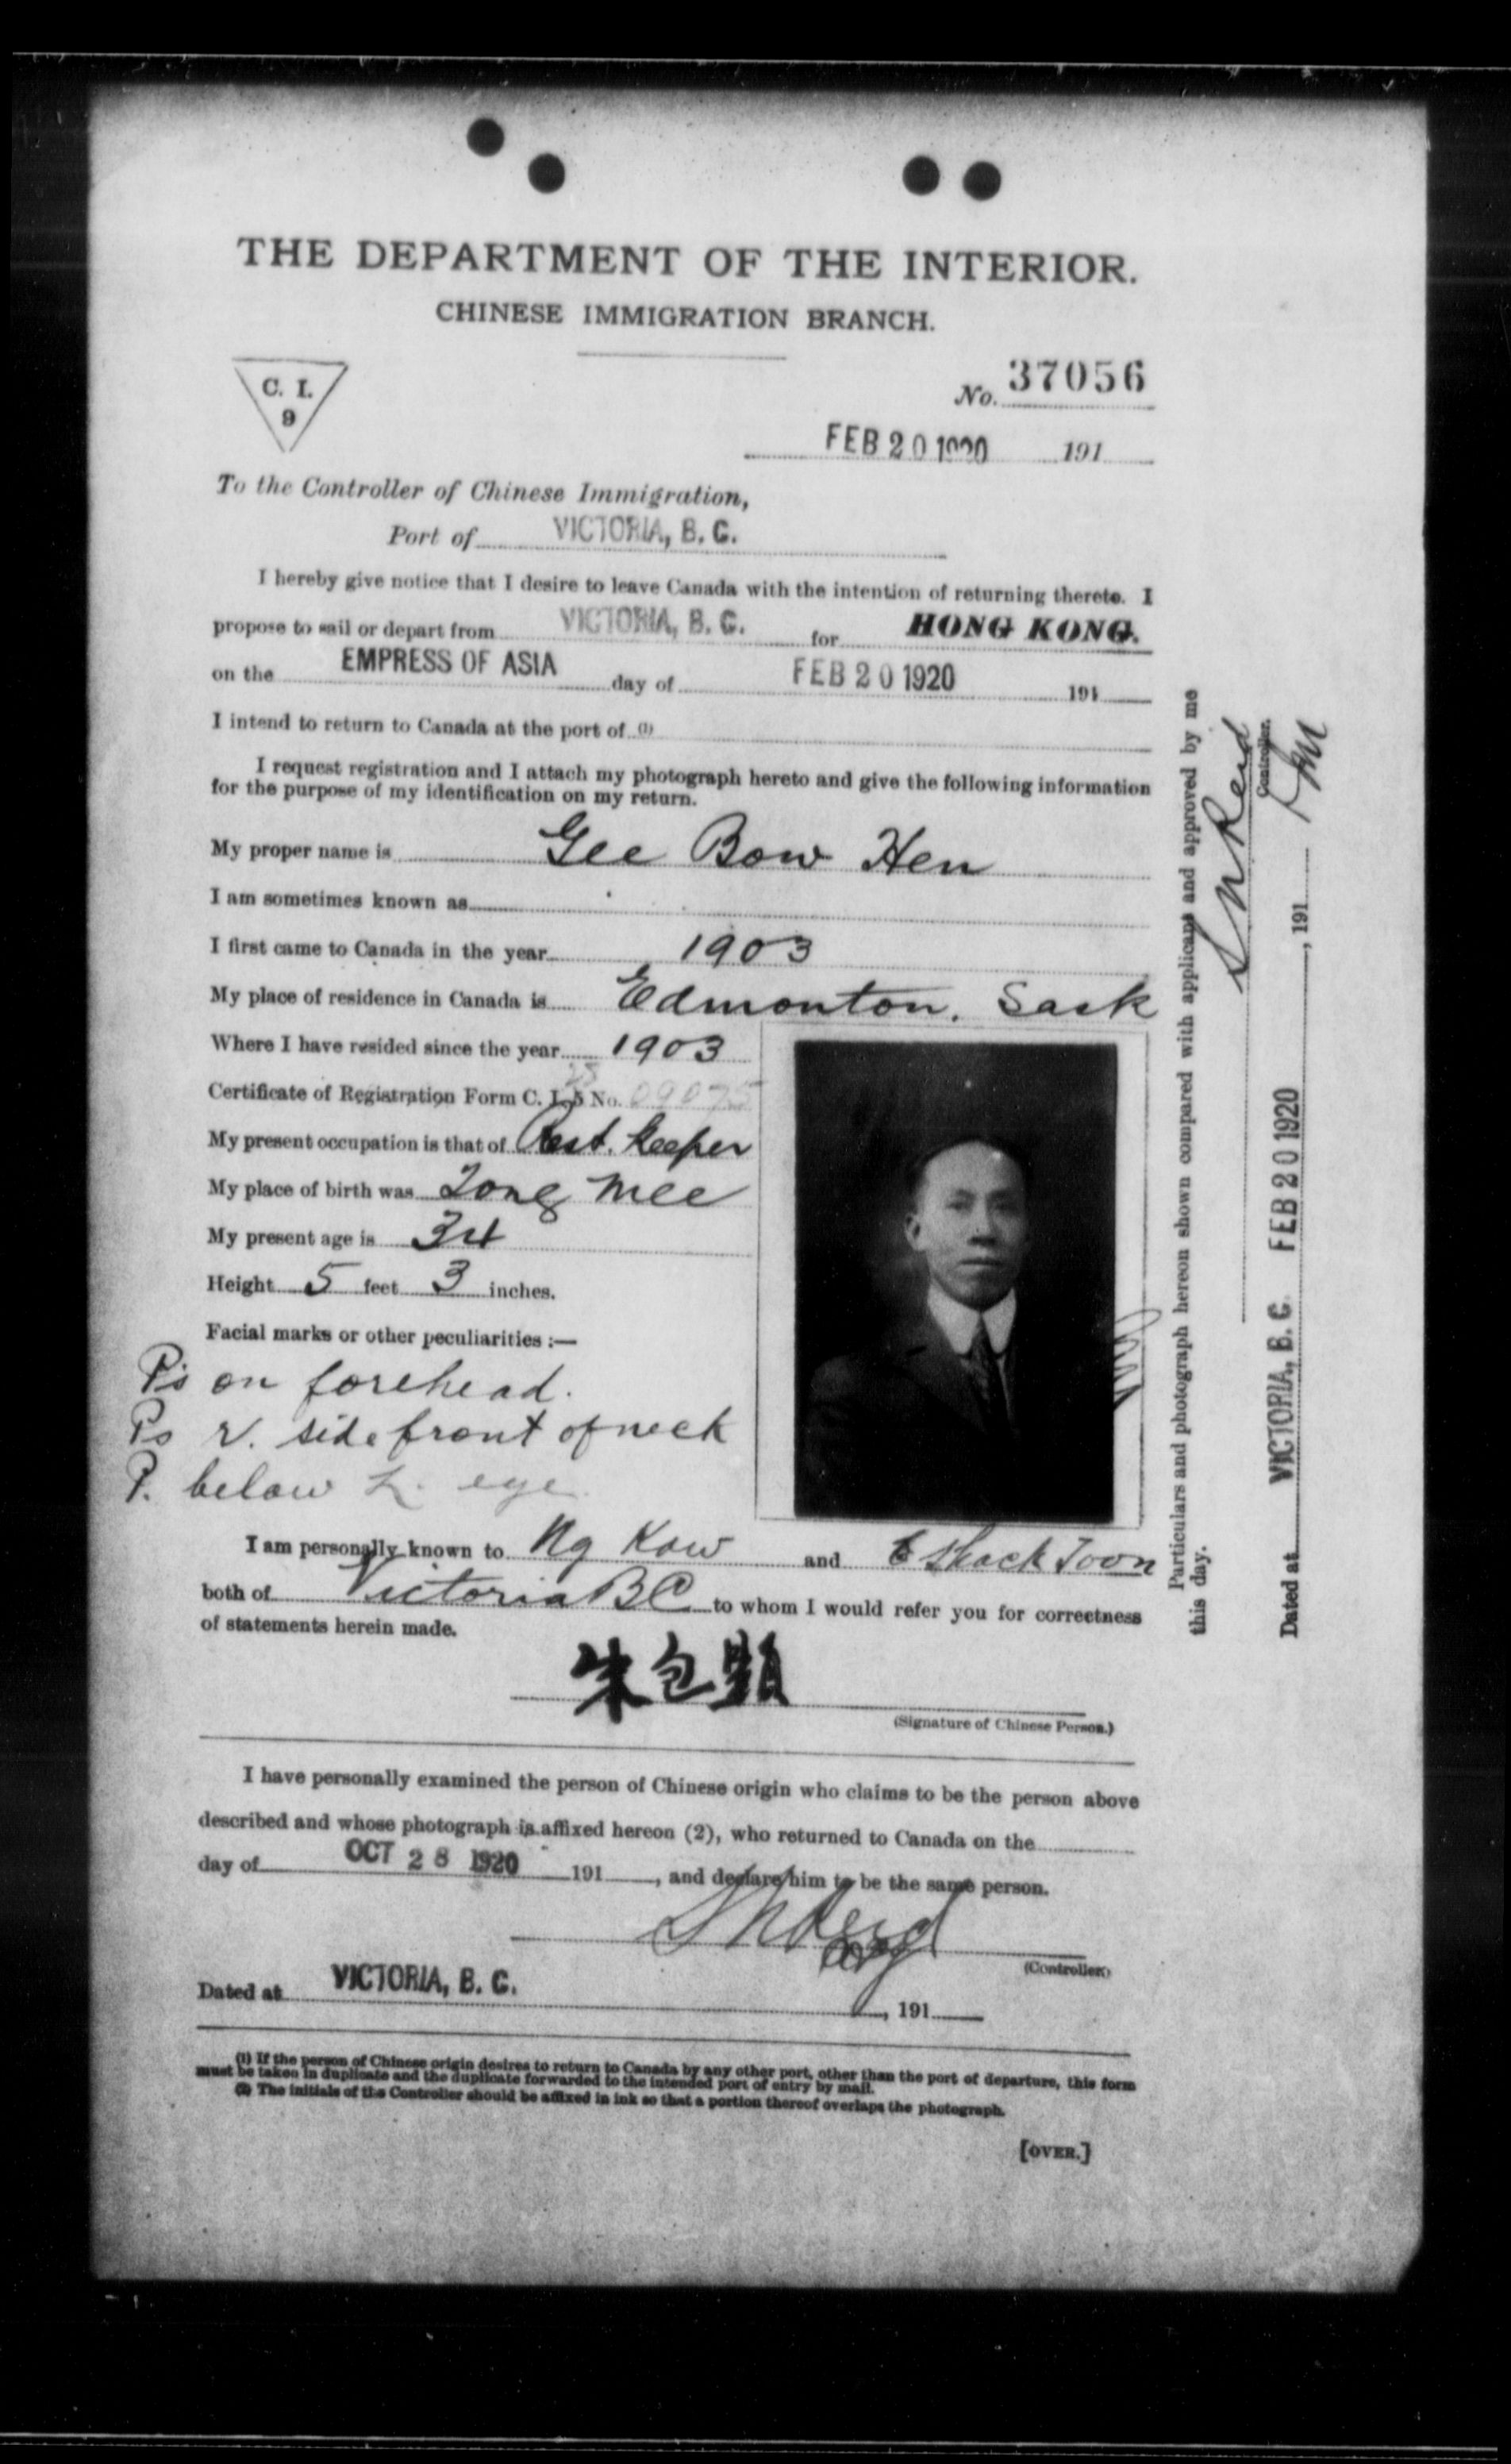 THE DEPARTMENT OF THE INTERIOR.
CHINESE IMMIGRATION BRANCH.
C. I.
9
No. 37056
FEB 20 1920 191
To the Controller of Chinese Immigration,
Port of VICTORIA, B. C.
I hereby give notice that I desire to leave Canada with the intention of returning thereto. I
propose to sail or depart from VICTORIA, B. C. for HONG KONG.
on the EMPRESS OF ASIA day of FEB 20 1920 191
I intend to return to Canada at the port of (1)
I request registration and I attach my photograph hereto and give the following information
for the purpose of my identification on my return.
My proper name is Gee Bow Hen
I am sometimes known as
I first came to Canada in the year 1903
My place of residence in Canada is Edmonton. Sask
Where I have resided since the year 1903
Certificate of Registration Form C. I. 5 No. 09075
My present occupation is that of Rest. Keeper
My place of birth was Tong Mee
My present age is 34
Height 5 feet 3 inches.
Facial marks or other peculiarities :—
Ps on forehead.
Ps r. side front of neck
P. below L. eye
I am personally known to Ng Kow and Shack Toon
both of Victoria BC to whom I would refer you for correctness
of statements herein made.
朱包顯
(Signature of Chinese Person.)
I have personally examined the person of Chinese origin who claims to be the person above
described and whose photograph is affixed hereon (2), who returned to Canada on the
day of OCT 28 1920 191 , and declare him to be the same person.
(Controller.)
Dated at VICTORIA, B. C. , 191
(1) If the person of Chinese origin desires to return to Canada by any other port, other than the port of departure, this form
must be taken in duplicate and the duplicate forwarded to the intended port of entry by mail.
(2) The initials of the Controller should be affixed in ink so that a portion thereof overlaps the photograph.
[OVER.]
Particulars and photograph hereon shown compared with applicant and approved by me
this day.
Controller.
Dated at VICTORIA, B. C. FEB 20 1920 , 191